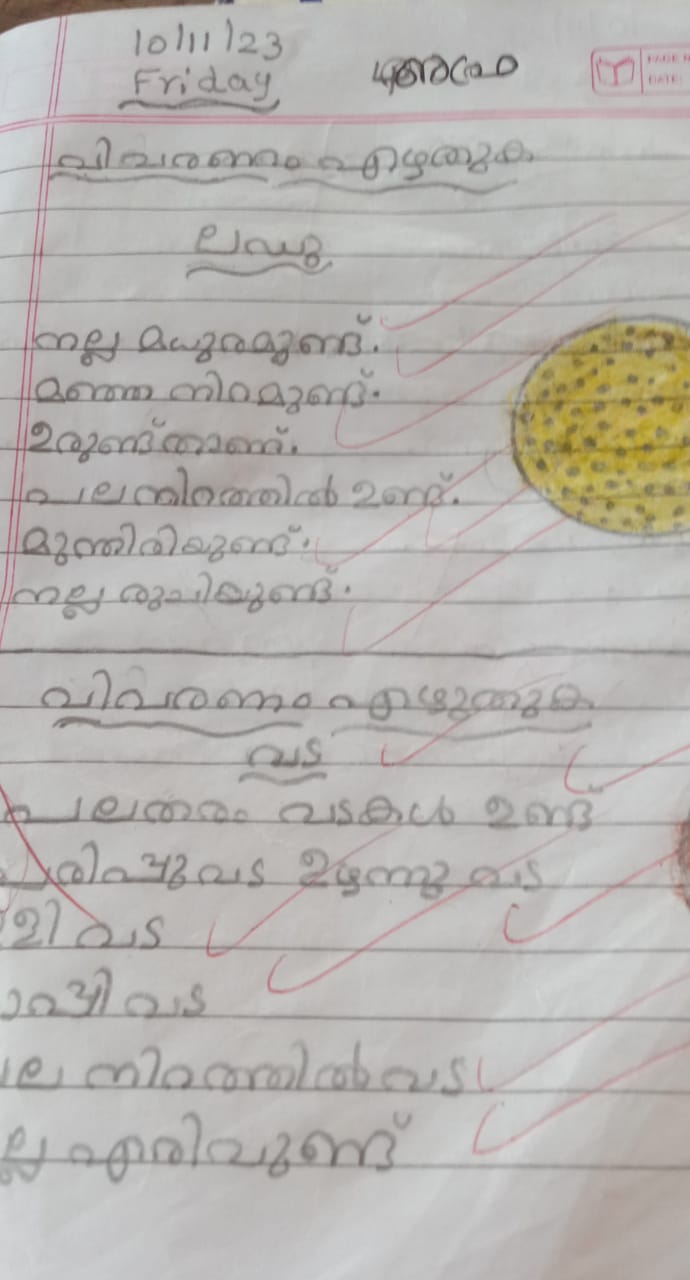 10/11/23
Friday
PAGE N
DATE:
വിവരണം എഴുതുക
ലഡു
നല്ല മധുരമുണ്ട്.
മഞ്ഞ നിറമുണ്ട്.
ഉരുണ്ടതാണ്.
പല നിറത്തിൽ ഉണ്ട്.
മുന്തിരിയുണ്ട്.
നല്ല രുചിയുണ്ട്.
വിവരണം എഴുതുക
വട
പലതരം വടകൾ ഉണ്ട്
പരിപ്പുവട ഉഴുന്നു വട
ളി വട
വട
ല നിറത്തിൽ വട
ല്ല എരിവുണ്ട്